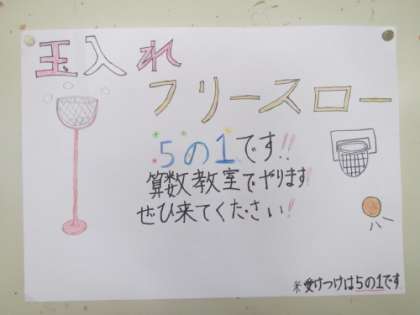 玉入れ
フリースロー
5の1です!!
算数教室でやります!
ぜひ来てください!
※受けつけは5の1です